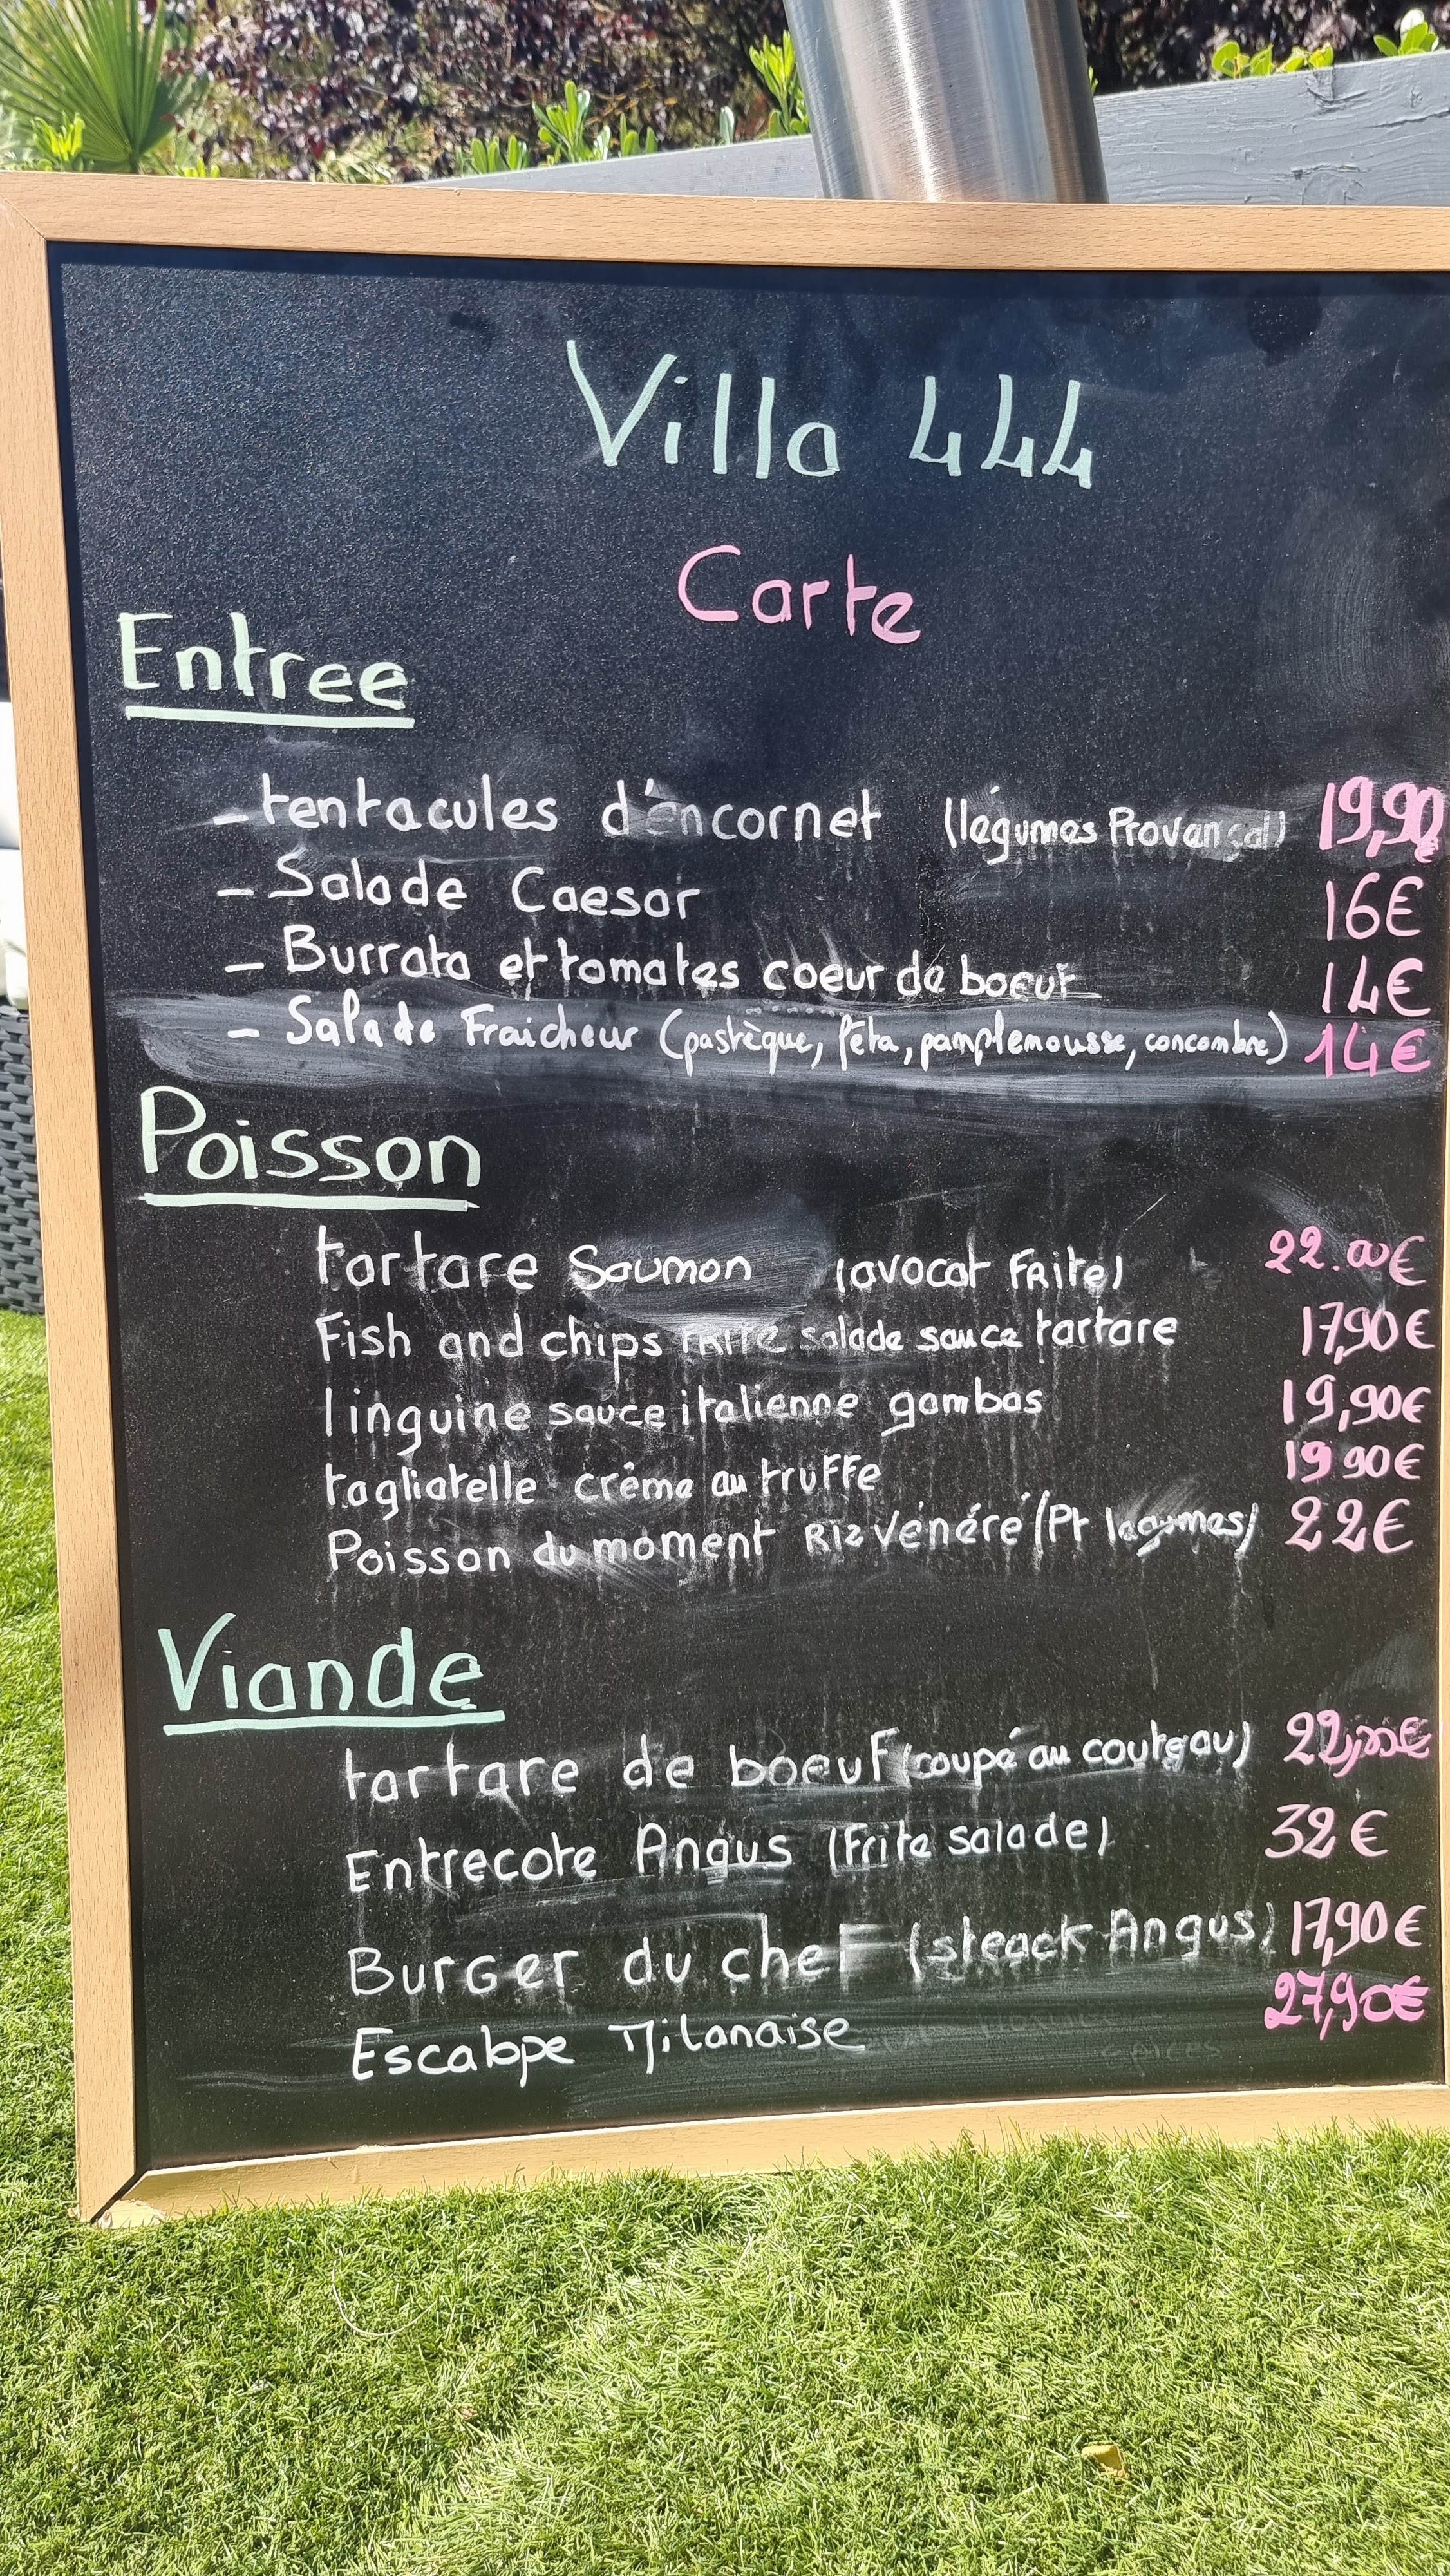 Villa 444
Carte
Entree
- tentacules d'encornet (légumes Provençal) 19,90€
- Salade Caesar 16€
- Burrata et tomates coeur de boeuf 14€
- Salade Fraicheur (pastèque, féta, pamplemousse, concombre) 14€
Poisson
tartare Saumon (avocat Frite) 22.00€
Fish and chips frite salade sauce tartare 17,90€
linguine sauce italienne gambas 19,90€
tagliatelle crême au truffe 19 90€
Poisson du moment Riz Vénéré (Pt legumes) 22€
Viande
tartare de boeuf (coupé au couteau) 22,00€
Entrecote Angus (Frite salade) 32€
Burger du chef (steack Angus) 17,90€
Escalope Milanaise 27,90€